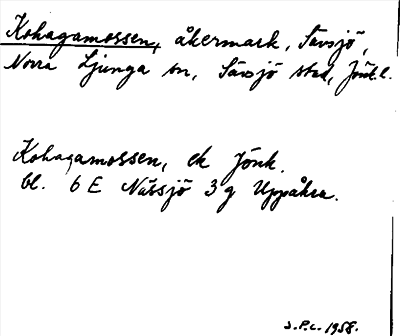 Kohagamossen, åkermark, Sävsjö,
Norra Ljunga sn, Sävsjö stad, Jönk.l.
Kohagamossen, ek Jönk.
bl. 6 E Nässjö 3 g Uppåkra.
S.P.L. 1958.